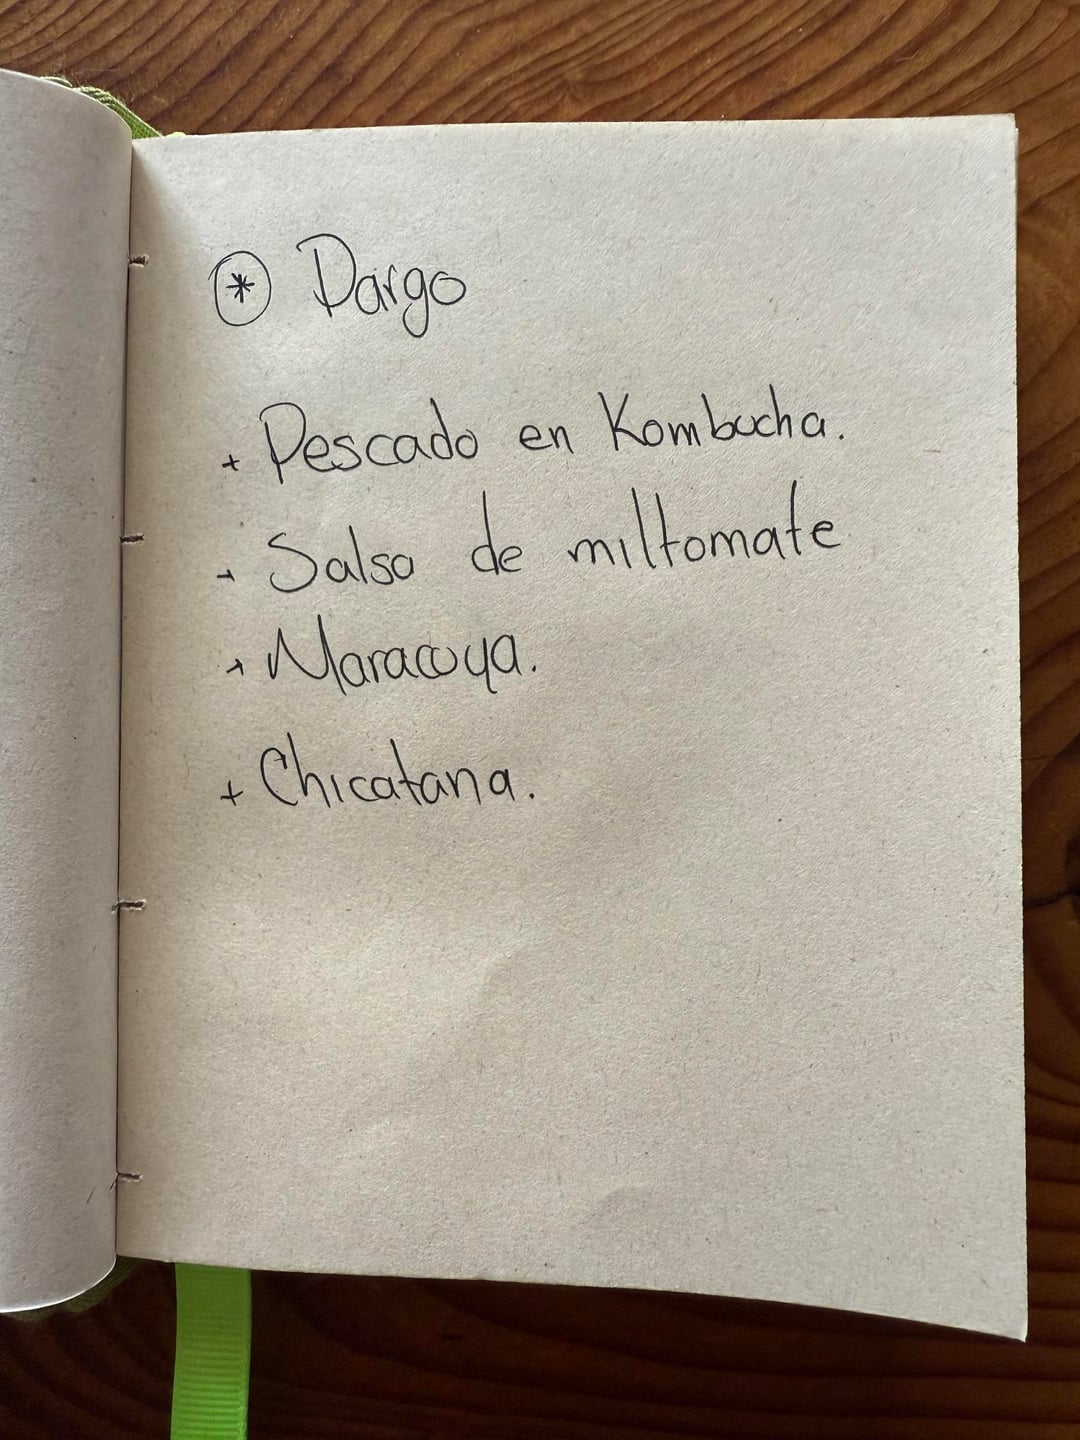 * Dargo
+ Pescado en Kombucha.
+ Salsa de miltomate
+ Maracuya.
+ Chicatana.